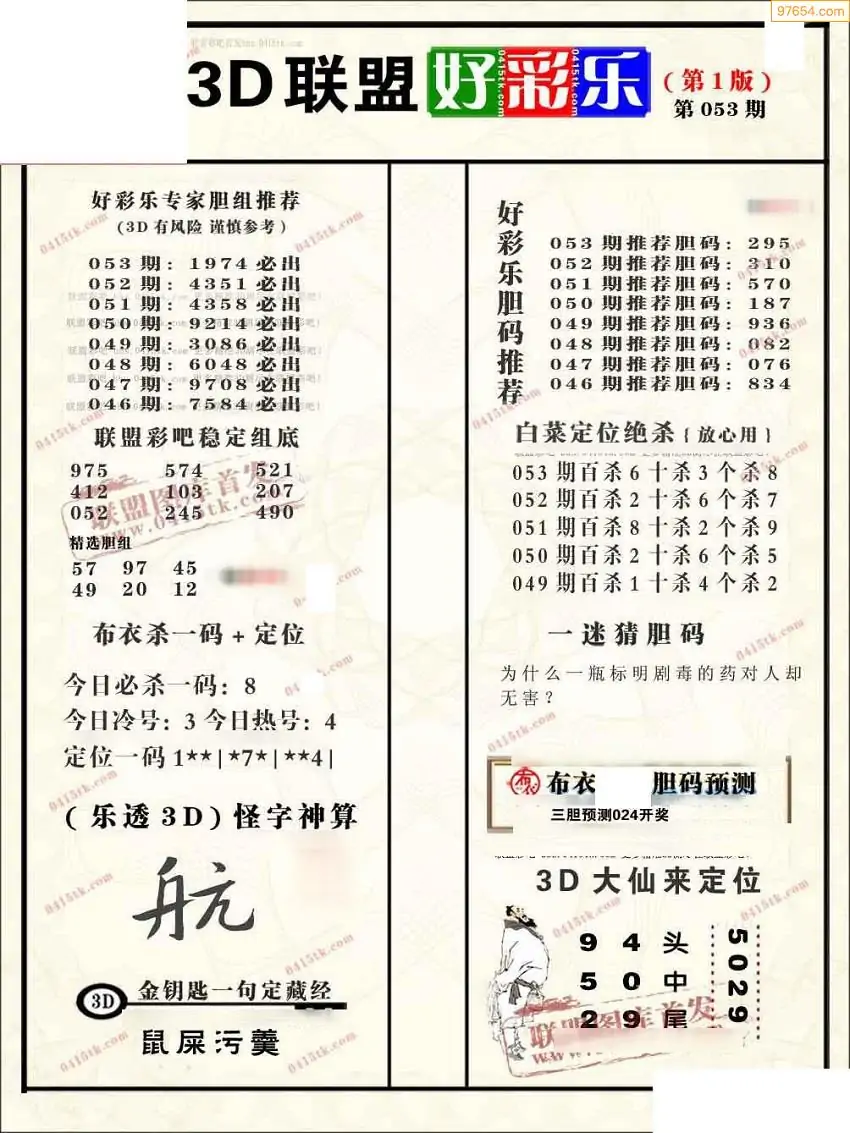 97654.com
3D联盟 好彩乐 (第1版)
0415tk.com 0415tk.com 0415tk.com
第053期
好彩乐专家胆组推荐
(3D有风险 谨慎参考)
053期: 1974必出
052期: 4351必出
051期: 4358必出
050期: 9214必出
049期: 3086必出
048期: 6048必出
047期: 9708必出
046期: 7584必出
联盟彩吧稳定组底
975 574 521
412 103 207
052 245 490
联盟图库首发
www.0415tk.com
精选胆组
57 97 45
49 20 12
布衣杀一码+定位
今日必杀一码: 8
今日冷号: 3 今日热号: 4
定位一码 1**|*7*|**4|
(乐透3D)怪字神算
航
3D 金钥匙一句定藏经
鼠屎污羹
好彩乐胆码推荐
053期推荐胆码: 295
052期推荐胆码: 310
051期推荐胆码: 570
050期推荐胆码: 187
049期推荐胆码: 936
048期推荐胆码: 082
047期推荐胆码: 076
046期推荐胆码: 834
白菜定位绝杀{放心用}
053期百杀6十杀3个杀8
052期百杀2十杀6个杀7
051期百杀8十杀2个杀9
050期百杀2十杀6个杀5
049期百杀1十杀4个杀2
一迷猜胆码
为什么一瓶标明剧毒的药对人却
无害?
布衣 胆码预测
三胆预测024开奖
3D大仙来定位
9 4 头
5 0 中
2 9 尾
5029
联盟图库首发
0415tk.com